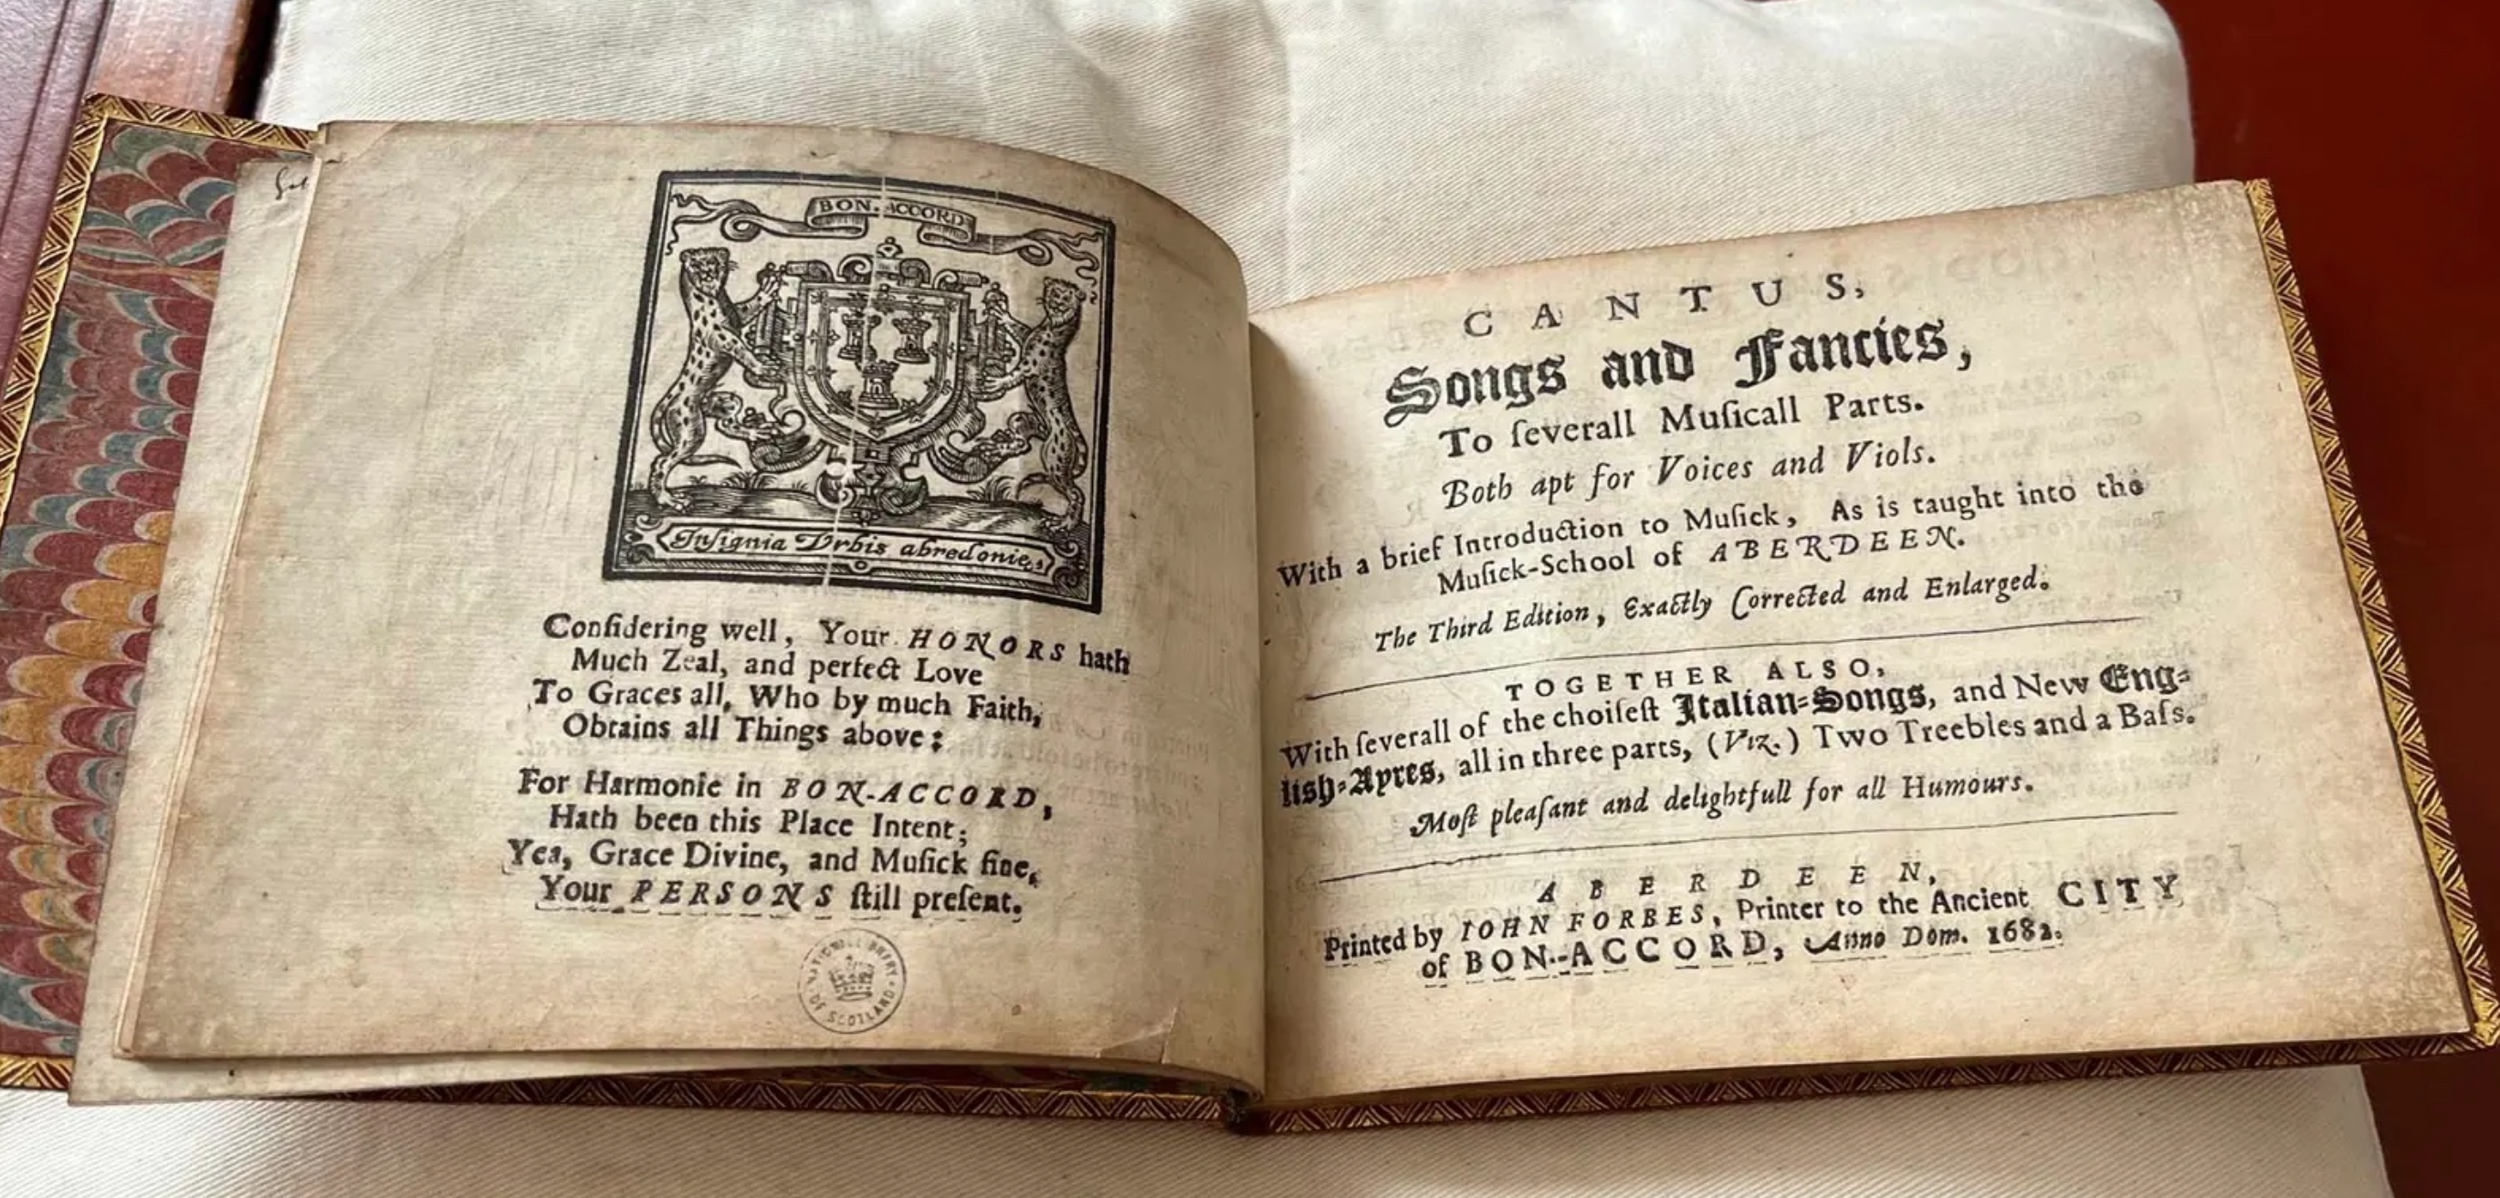 BON-ACCORD
Insignia Urbis abredonie
Conſidering well, Your HONORS hath
Much Zeal, and perfect Love
To Graces all, Who by much Faith,
Obtains all Things above:
For Harmonie in BON-ACCORD,
Hath been this Place Intent;
Yea, Grace Divine, and Muſick fine,
Your PERSONS ſtill preſent.
NATIONAL LIBRARY OF SCOTLAND
CANTUS,
Songs and Fancies,
To ſeverall Muſicall Parts.
Both apt for Voices and Viols.
With a brief Introduction to Muſick, As is taught into the
Muſick-School of ABERDEEN.
The Third Edition, Exactly Corrected and Enlarged.
TOGETHER ALSO,
With ſeverall of the choiſeſt Italian-Songs, and New Eng-
liſh-Ayres, all in three parts, (Viz.) Two Treebles and a Baſs.
Moſt pleaſant and delightfull for all Humours.
ABERDEEN,
Printed by IOHN FORBES, Printer to the Ancient CITY
of BON-ACCORD, Anno Dom. 1682.